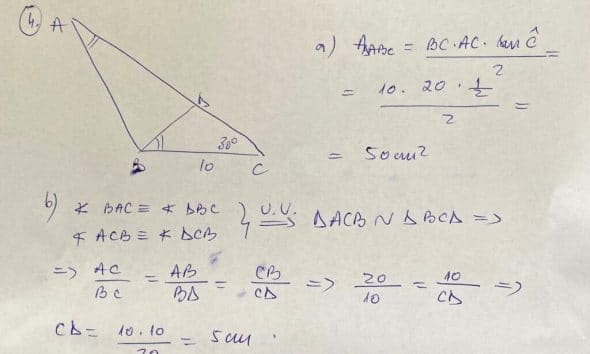 4. A
a) A∆ABC = BC · AC · sin Ĉ / 2 =
= 10 · 20 · 1/2 / 2 =
= 50 cm²
D
30°
B 10 C
b) ∢ BAC ≡ ∢ DBC
∢ ACB ≡ ∢ DCB } U.U. => ∆ACB ~ ∆BCD =>
=> AC/BC = AB/BD = CB/CD => 20/10 = 10/CD =>
CD = 10 · 10 / 20 = 5 cm .